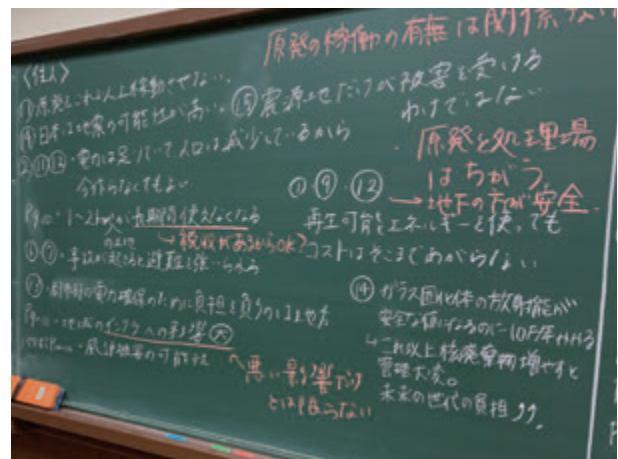 原発の稼働の有無は関係ない
〈住人〉
原発をこれ以上稼動させない。
⑭日本は地震の可能性が高い
⑮震源地だけが被害を受ける
わけではない
②⑪⑫・電力は足りていて人口は減少しているから
今作らなくてもよい
・原発と処理場
はちがう
→地下の方が安全.
①⑨・⑫
再生可能エネルギーを使っても
コストはそこまであがらない
1〜2km²が長期間使えなくなる
の土地
→報収があるからOK?
⑥⑦・事故が起きると避難を強いられる
⑬・都市部の電力確保のために負担を負うのはおかしい
地域のインフラへの影響大
・風評被害の可能性
↖悪い影響だけ
とは限らない
⑭ガラス固化体の放射能が
安全な値になるのに10万年かかる
↳これ以上核廃棄物増やすと
管理大変。
未来の世代の負担